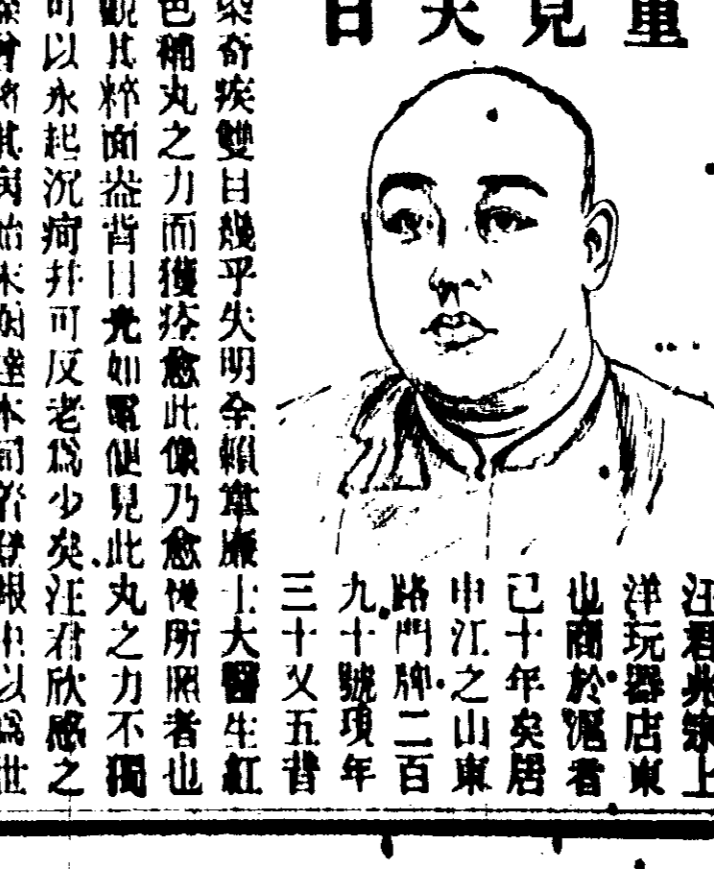 重見天日
汪君典䋲上
洋玩器店東
也商於滬者
已十年矣居
申江之山東
路門牌二百
九十號項年
三十又五昔
染奇疾雙目幾乎失明全賴韋廉士大醫生紅
色補丸之力而獲痊愈此像乃愈後所照者也
觀其粹面盎背目光如電便見此丸之力不獨
可以永起沉疴并可反老爲少矣汪君欣感之
將其病始末
以爲世